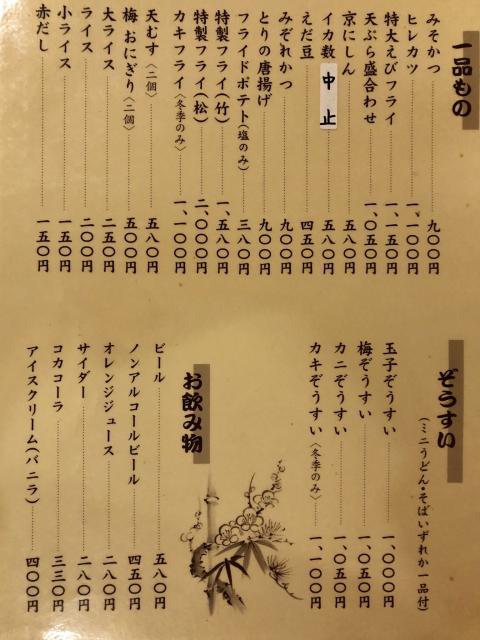 一品もの
みそかつ 九〇〇円
ヒレカツ 一、一〇〇円
特大えびフライ 一、一五〇円
天ぷら盛合わせ 一、〇五〇円
京にしん 五八〇円
イカ数 中止 五八〇円
えだ豆 四五〇円
みぞれかつ 九〇〇円
とりの唐揚げ 九〇〇円
フライドポテト(塩のみ) 三八〇円
特製フライ(竹) 一、五八〇円
特製フライ(松) 二、〇〇〇円
カキフライ〈冬季のみ〉 一、一〇〇円
天むす〈二個〉 五八〇円
梅おにぎり〈二個〉 五〇〇円
大ライス 二五〇円
ライス 二〇〇円
小ライス 一五〇円
赤だし 一五〇円
ぞうすい
(ミニうどん・そばいずれか一品付)
玉子ぞうすい 一、〇〇〇円
梅ぞうすい 一、〇五〇円
カニぞうすい 一、〇五〇円
カキぞうすい〈冬季のみ〉 一、一〇〇円
お飲み物
ビール 五八〇円
ノンアルコールビール 四五〇円
オレンジジュース 二八〇円
サイダー 二八〇円
コカコーラ 三三〇円
アイスクリーム(バニラ) 四〇〇円